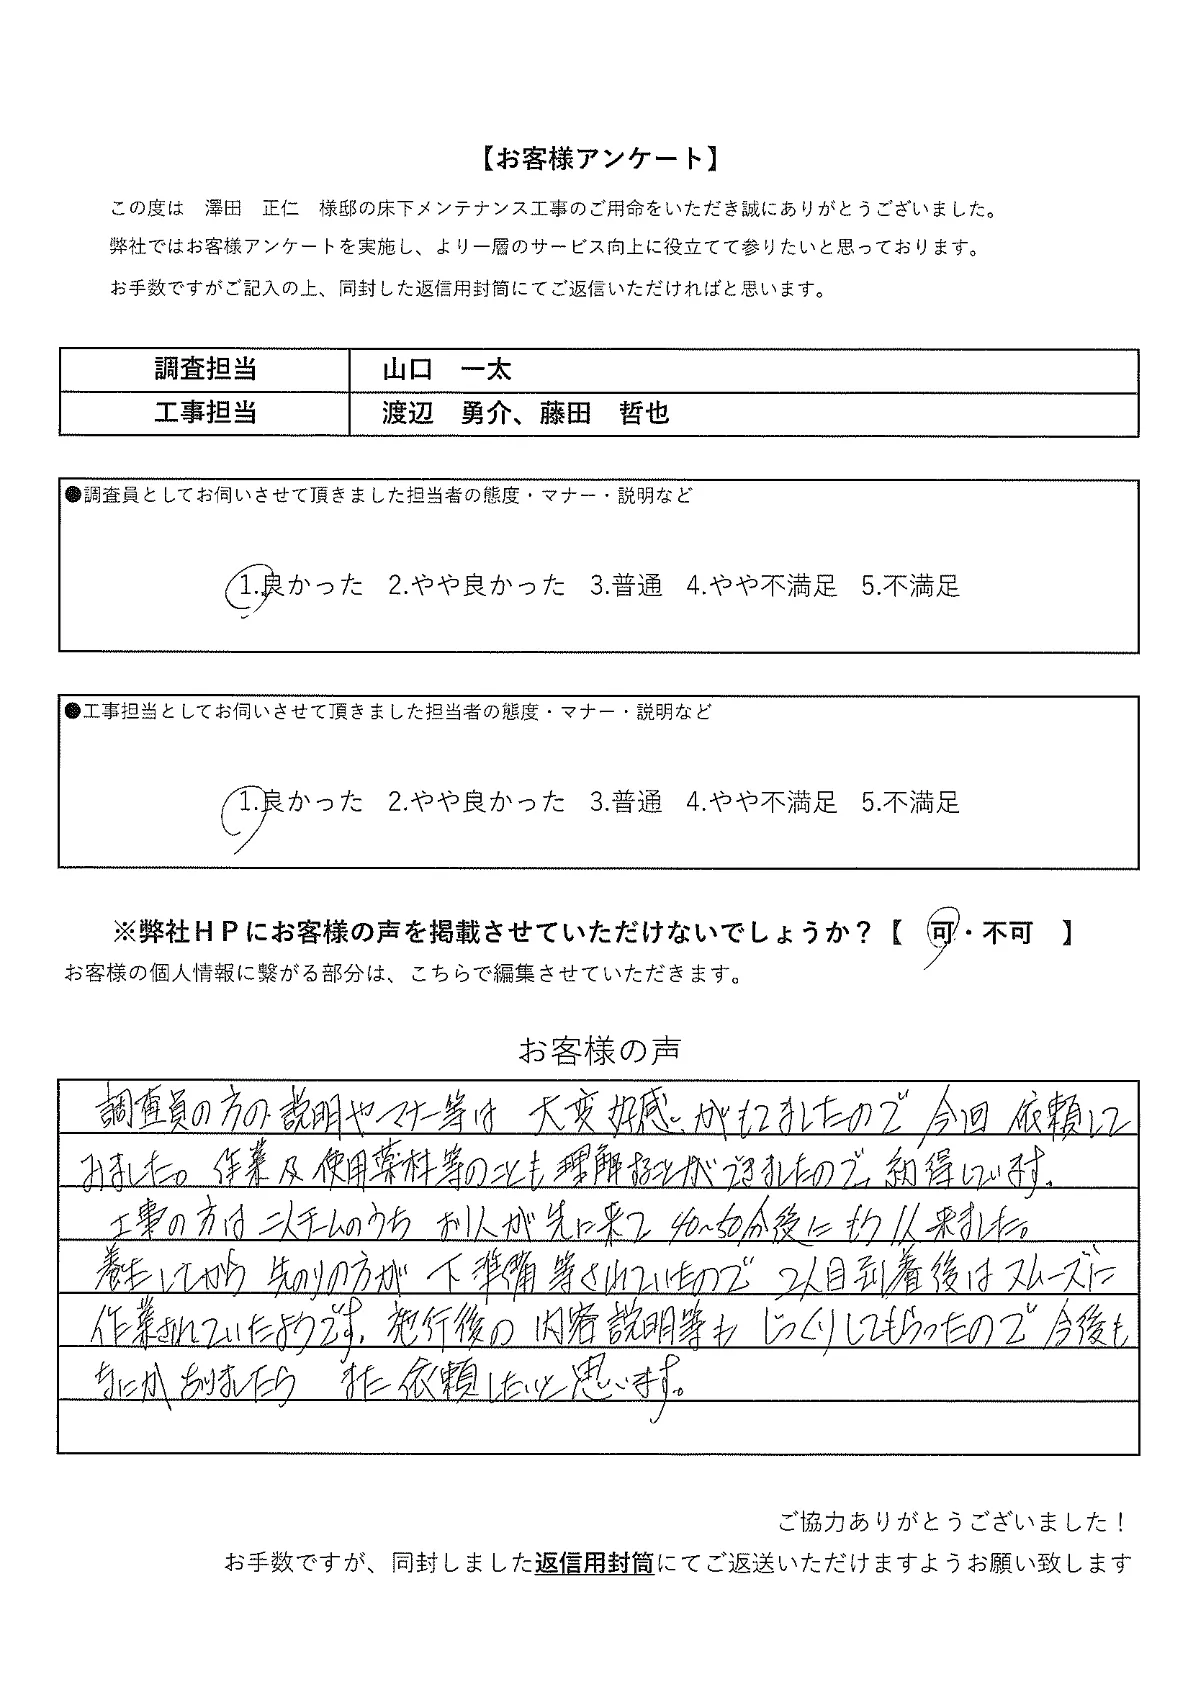 【お客様アンケート】
この度は　澤田　正仁　様邸の床下メンテナンス工事のご用命をいただき誠にありがとうございました。
弊社ではお客様アンケートを実施し、より一層のサービス向上に役立てて参りたいと思っております。
お手数ですがご記入の上、同封した返信用封筒にてご返信いただければと思います。
調査担当　山口　一太
工事担当　渡辺　勇介、藤田　哲也
●調査員としてお伺いさせて頂きました担当者の態度・マナー・説明など
1.良かった　2.やや良かった　3.普通　4.やや不満足　5.不満足
●工事担当としてお伺いさせて頂きました担当者の態度・マナー・説明など
1.良かった　2.やや良かった　3.普通　4.やや不満足　5.不満足
※弊社ＨＰにお客様の声を掲載させていただけないでしょうか？【　可・不可　】
お客様の個人情報に繋がる部分は、こちらで編集させていただきます。
お客様の声
調査員の方の説明やマナー等は　大変好感がもてましたので　今回　依頼して
みました。作業及使用薬料等のことも理解することができましたので、納得しています。
工事の方は二人チームのうち　お1人が先に来て　40〜50分後にもう1人来ました。
養生してから　先のりの方が　下準備等されていたので　2人目到着後はスムーズに
作業されていたようです。施行後の　内容説明等も　じっくりしてもらったので　今後も
なにかありましたら　また　依頼したいと思います。
ご協力ありがとうございました！
お手数ですが、同封しました返信用封筒にてご返送いただけますようお願い致します